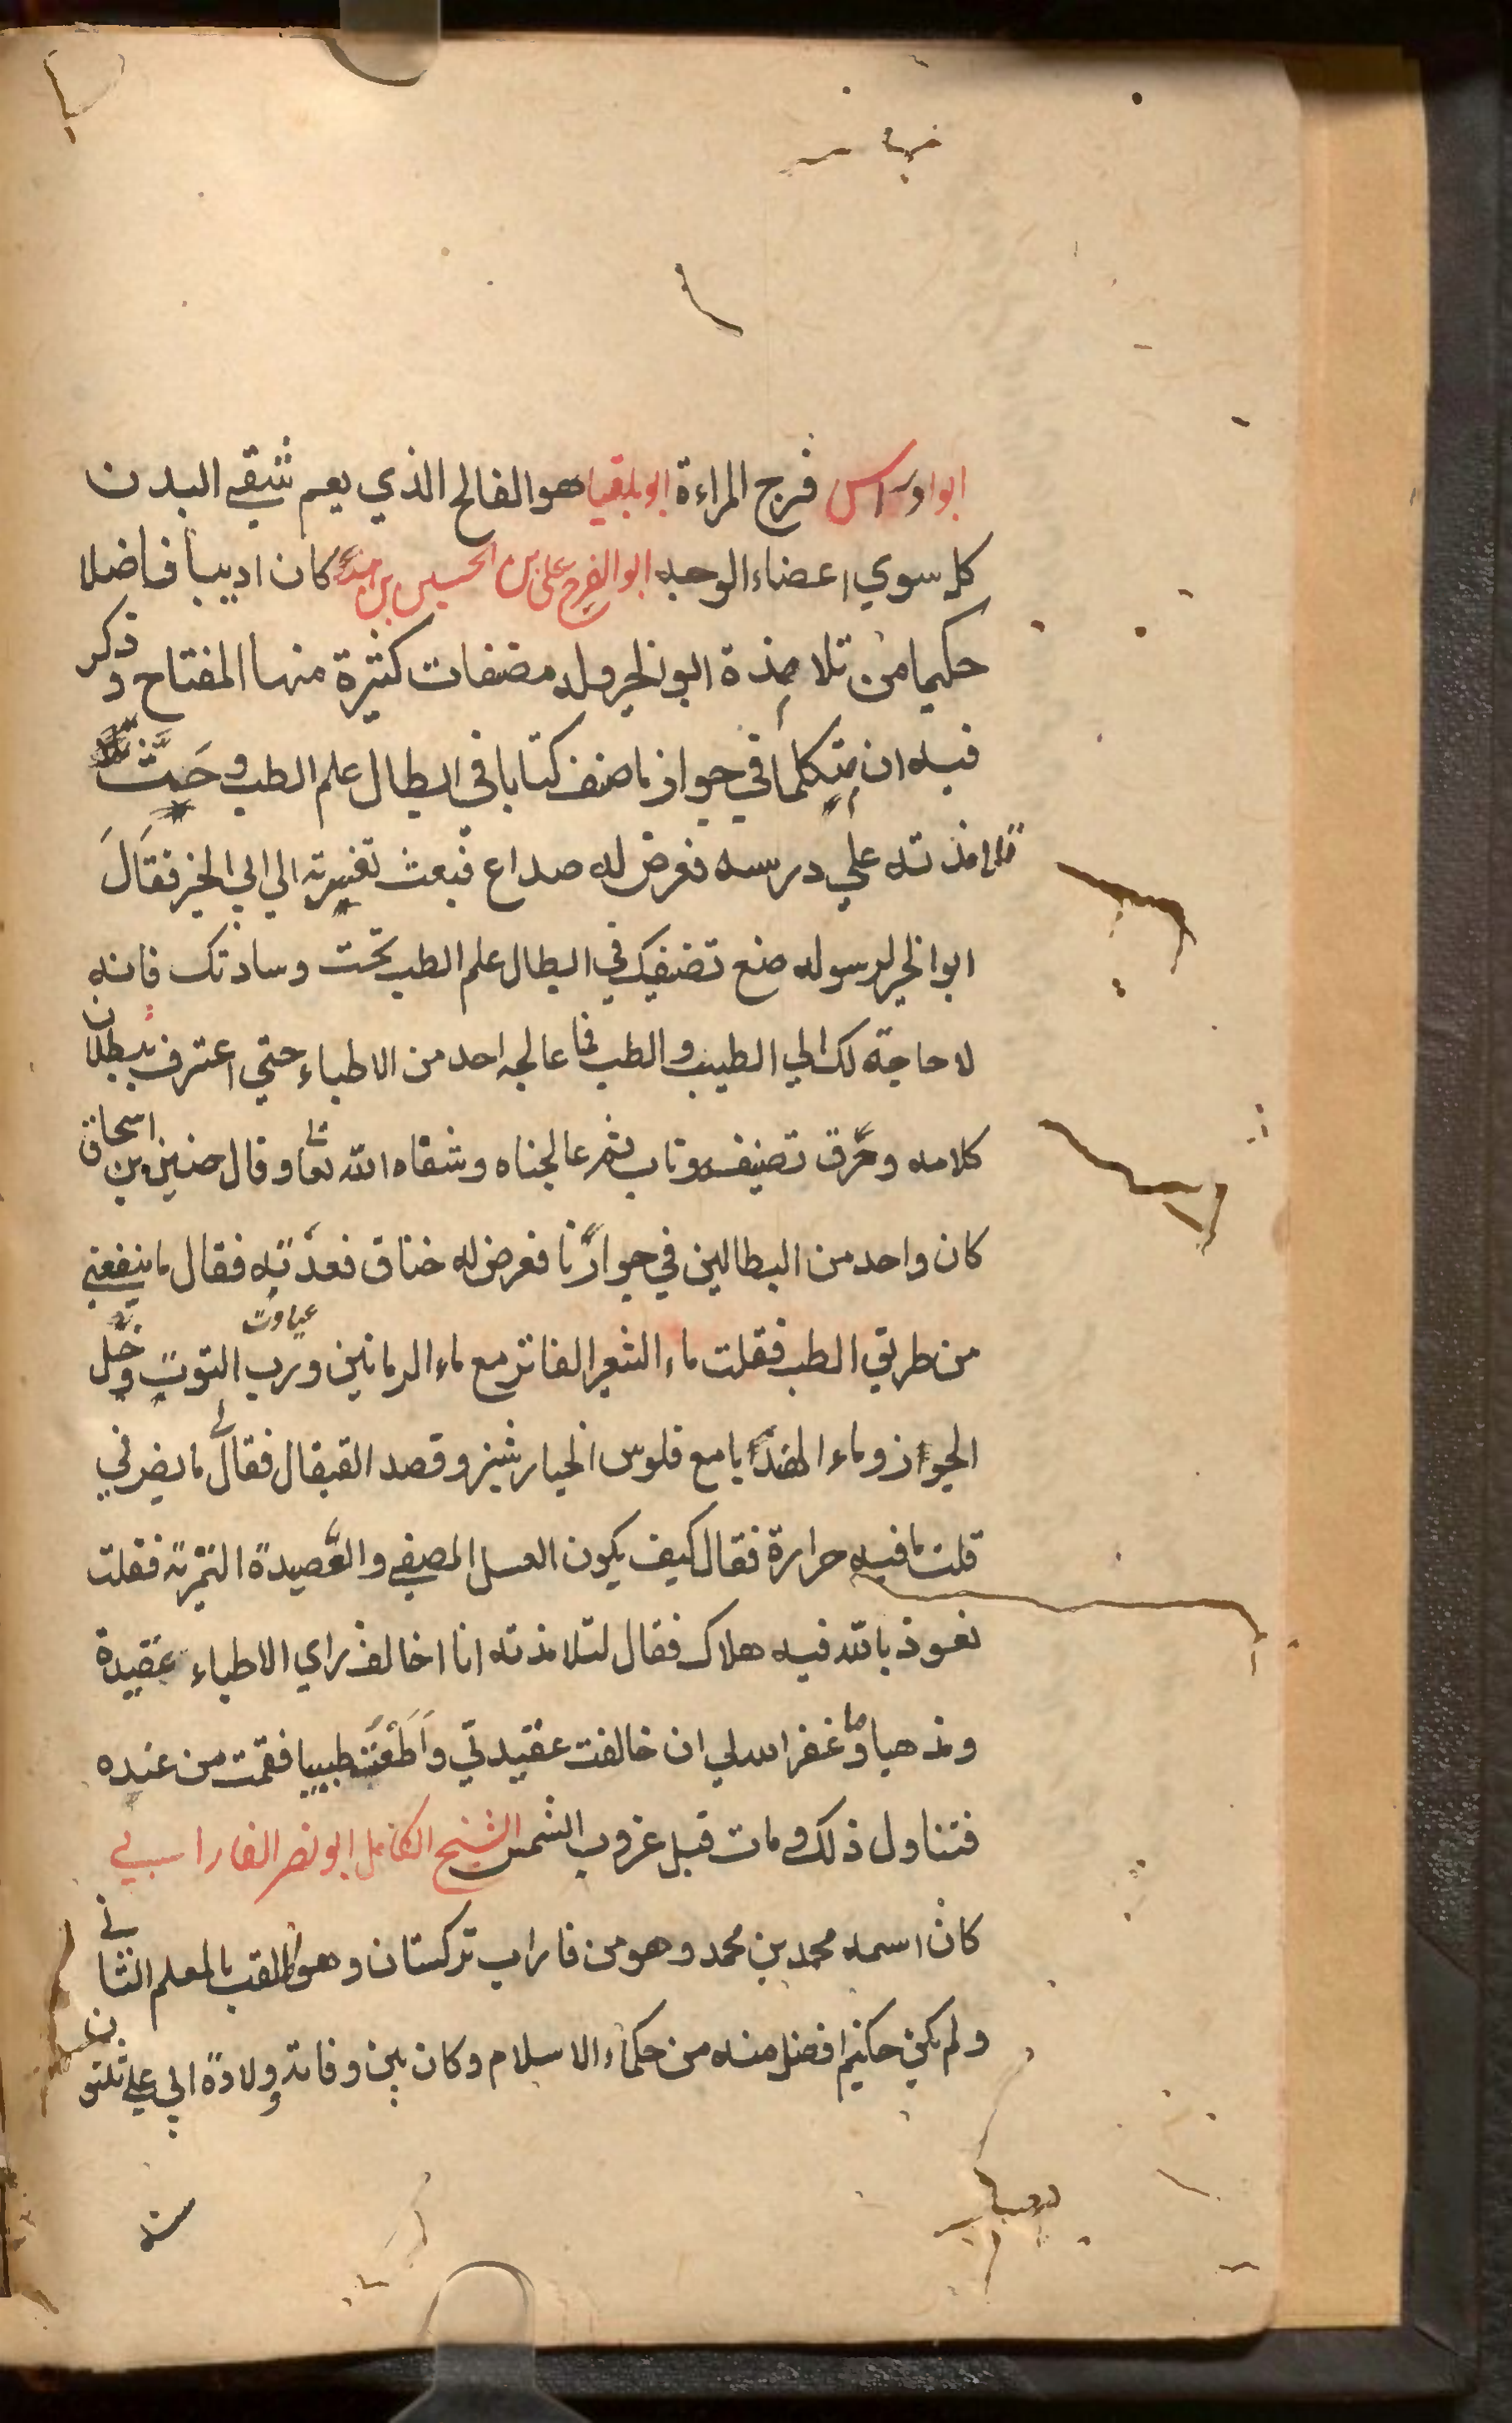 ابوادراس فرج المراءة ابوبلقيا هو الفالح الذي يعم شقے البدن
كله سوي اعضاء الوجه ابوالفرج علی بن الحسین بن هند كان اديبا فاضلا
حكيما من تلامذة ابوالخير وله مصنفات كثيرة منها المفتاح و ذكر
فيه ان متكلما في جوازنا صنف كتابا في ابطال علم الطب و حَثَّ
تلامذته علي درسه فعرض له صداع فبعث تفسرته الي ابي الخير فقال
ابوالخير لرسوله ضع تصنيفك في ابطال علم الطب تحت وسادتك فانه
لا حاجة لك الي الطبيب والطب فما عالجه احد من الاطباء حتي اعترف ببطلان
كلامه وخرق تصنيفه وتاب ثم عالجناه وشفاه الله تعا وقال حنين بن اسحاق
كان واحد من البطالين في جوارنا فعرض له خناق فعدته فقال ما ينفعني
من طريق الطب فقلت ماء الشعير الفاتر مع ماء الرمانين ورب التوت وخل
الجواز وماء الهندبا مع فلوس الخيار شنبر وقصد القيفال فقال لي ما يضرني
قلت ما فيه حرارة فقال كيف يكون العسل المصفے والعصيدة التمرية فقلت
نعوذ بالله فيه هلاك فقال لتلامذته انا اخالف راي الاطباء عقيدة
ومذهبا وما غفر الله لي ان خالفت عقيدتي واَطَعْتُ طبيبا فقمت من عنده
فتناول ذلك ومات قبل غروب الشمس الشيخ الكامل ابونصر الفارابي
كان اسمه محمد بن محمد وهو من فاراب تركستان وهو الملقب بالمعلم الثاني
ولم يكن حكيم افضل منه من حكماء الاسلام وكان بين وفاته وولادة ابي علي ثلثون